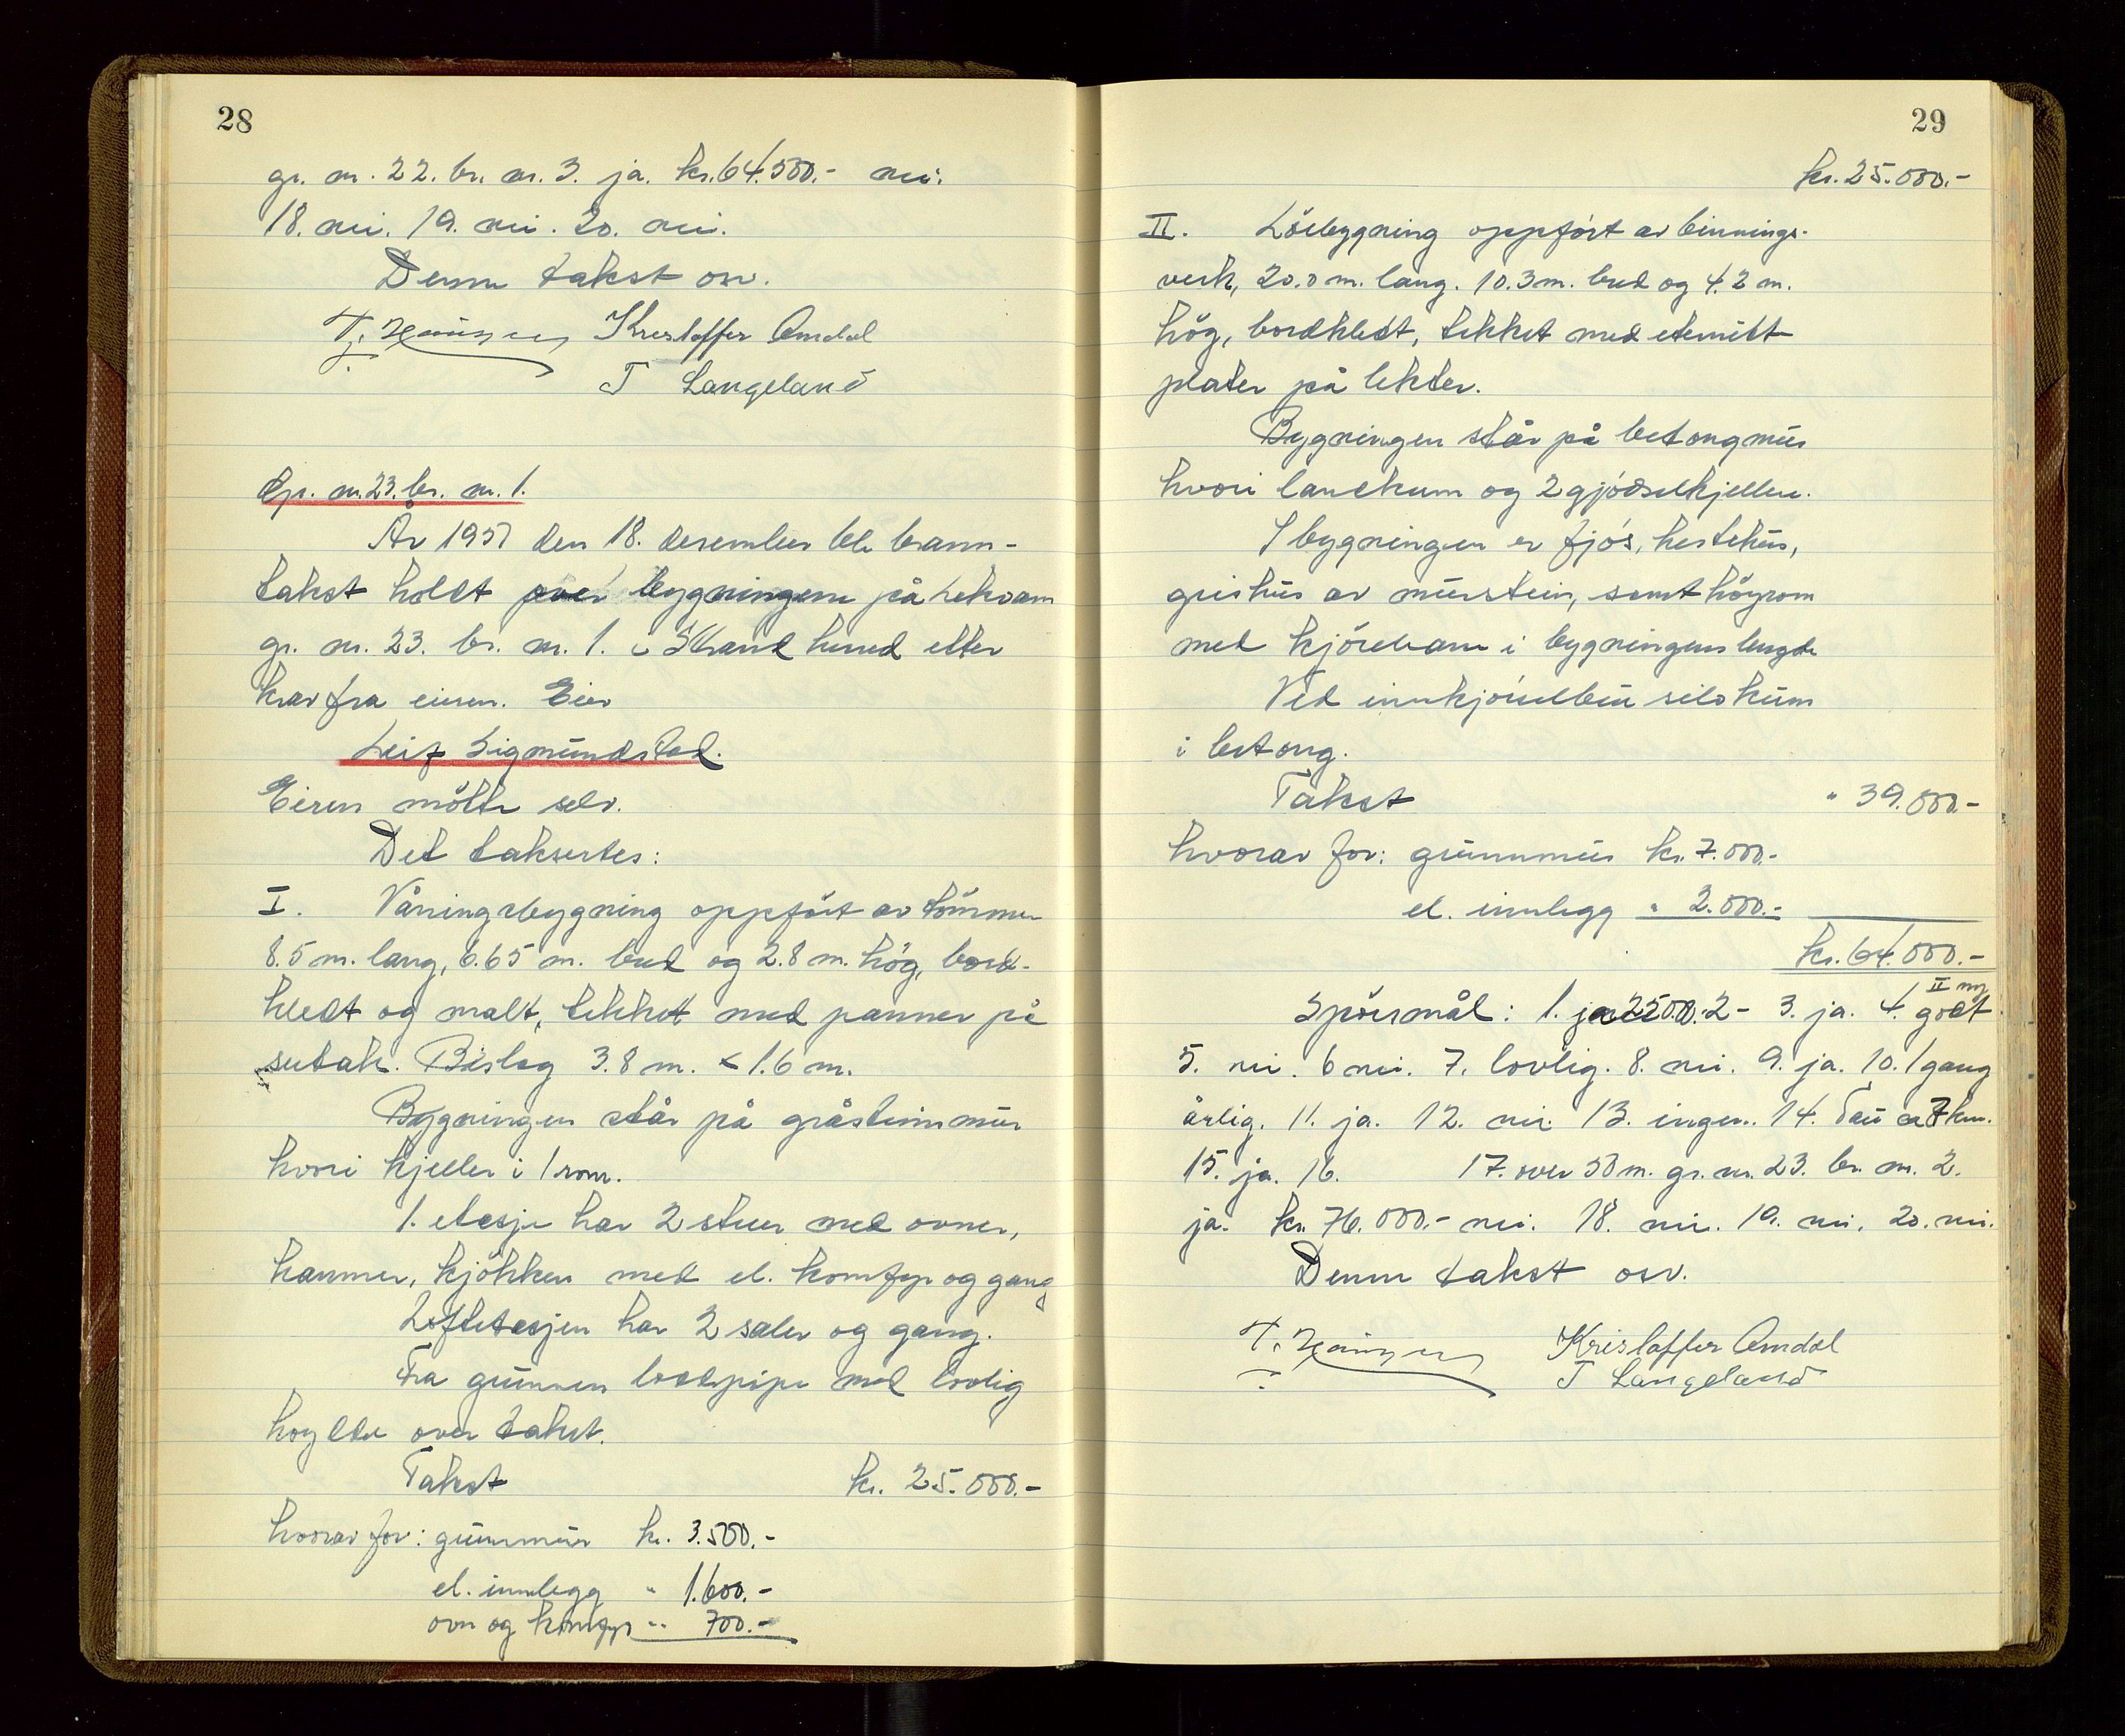 28
gr. nr. 22. br. nr. 3. ja. kr. 64.500.- nei.
18. nei. 19. nei. 20. nei.
Denne takst osv.
Kristoffer Amdal
T Langeland
Gr. nr. 23. br. nr. 1.
År 1957 den 18. desember ble brann-
takst holdt over bygningene på Lekvam
gr. nr. 23. br. nr. 1. i Strand herred etter
krav fra eieren. Eier
Leif Sigmundstad.
Eieren møtte selv.
Det taksertes:
I. Våningsbygning oppført av tømmer
8.5 m. lang, 6.65 m. bred og 2.8 m. høg, bord-
kledt og malt, tekket med panner på
sutak. Bislag 3.8 m. x 1.6 m.
Bygningen står på gråsteinsmur
hvori kjeller i 1 rom.
1. etasje har 2 stuer med ovner,
kammer, kjøkken med el. komfyr og gang
Loftetasjen har 2 saler og gang.
Fra grunnen brandpipe med lovlig
høyde over taket.
Takst kr. 25.000.-
hvorav for: grunnmur kr. 3.500.-
el. innlegg " 1.600.-
ovn og komfyr " 700.-
29
kr. 25.000.-
II. Löebygning oppført av binnings-
verk, 20.0 m. lang. 10.3 m. bred og 4.2 m.
høg, bordkledt, tekket med etemitt
plater på lekter.
Bygningen står på betongmur
hvori landkum og 2 gjødselkjellere.
I bygningen er fjøs, hestehus,
grishus av murstein, samt høyrom
med kjørebane i bygningens lengde
Ved innkjørselbru silokum
i betong.
Takst " 39.000.-
hvorav for: grunnmur kr. 7.000.-
el. innlegg " 2.000.-
kr. 64.000.-
II ny
Spørsmål: 1. ja 2500. 2- 3. ja. 4. godt.
5. nei. 6 nei. 7. lovlig. 8. nei. 9. ja. 10. 1 gang
årlig. 11. ja. 12. nei. 13. ingen. 14. Tau ca 7 km.
15. ja. 16. 17. over 50 m. gr. nr. 23. br. nr. 2.
ja. kr. 76.000.- nei. 18. nei. 19. nei. 20. nei.
Denne takst osv.
Kristoffer Amdal
T Langeland